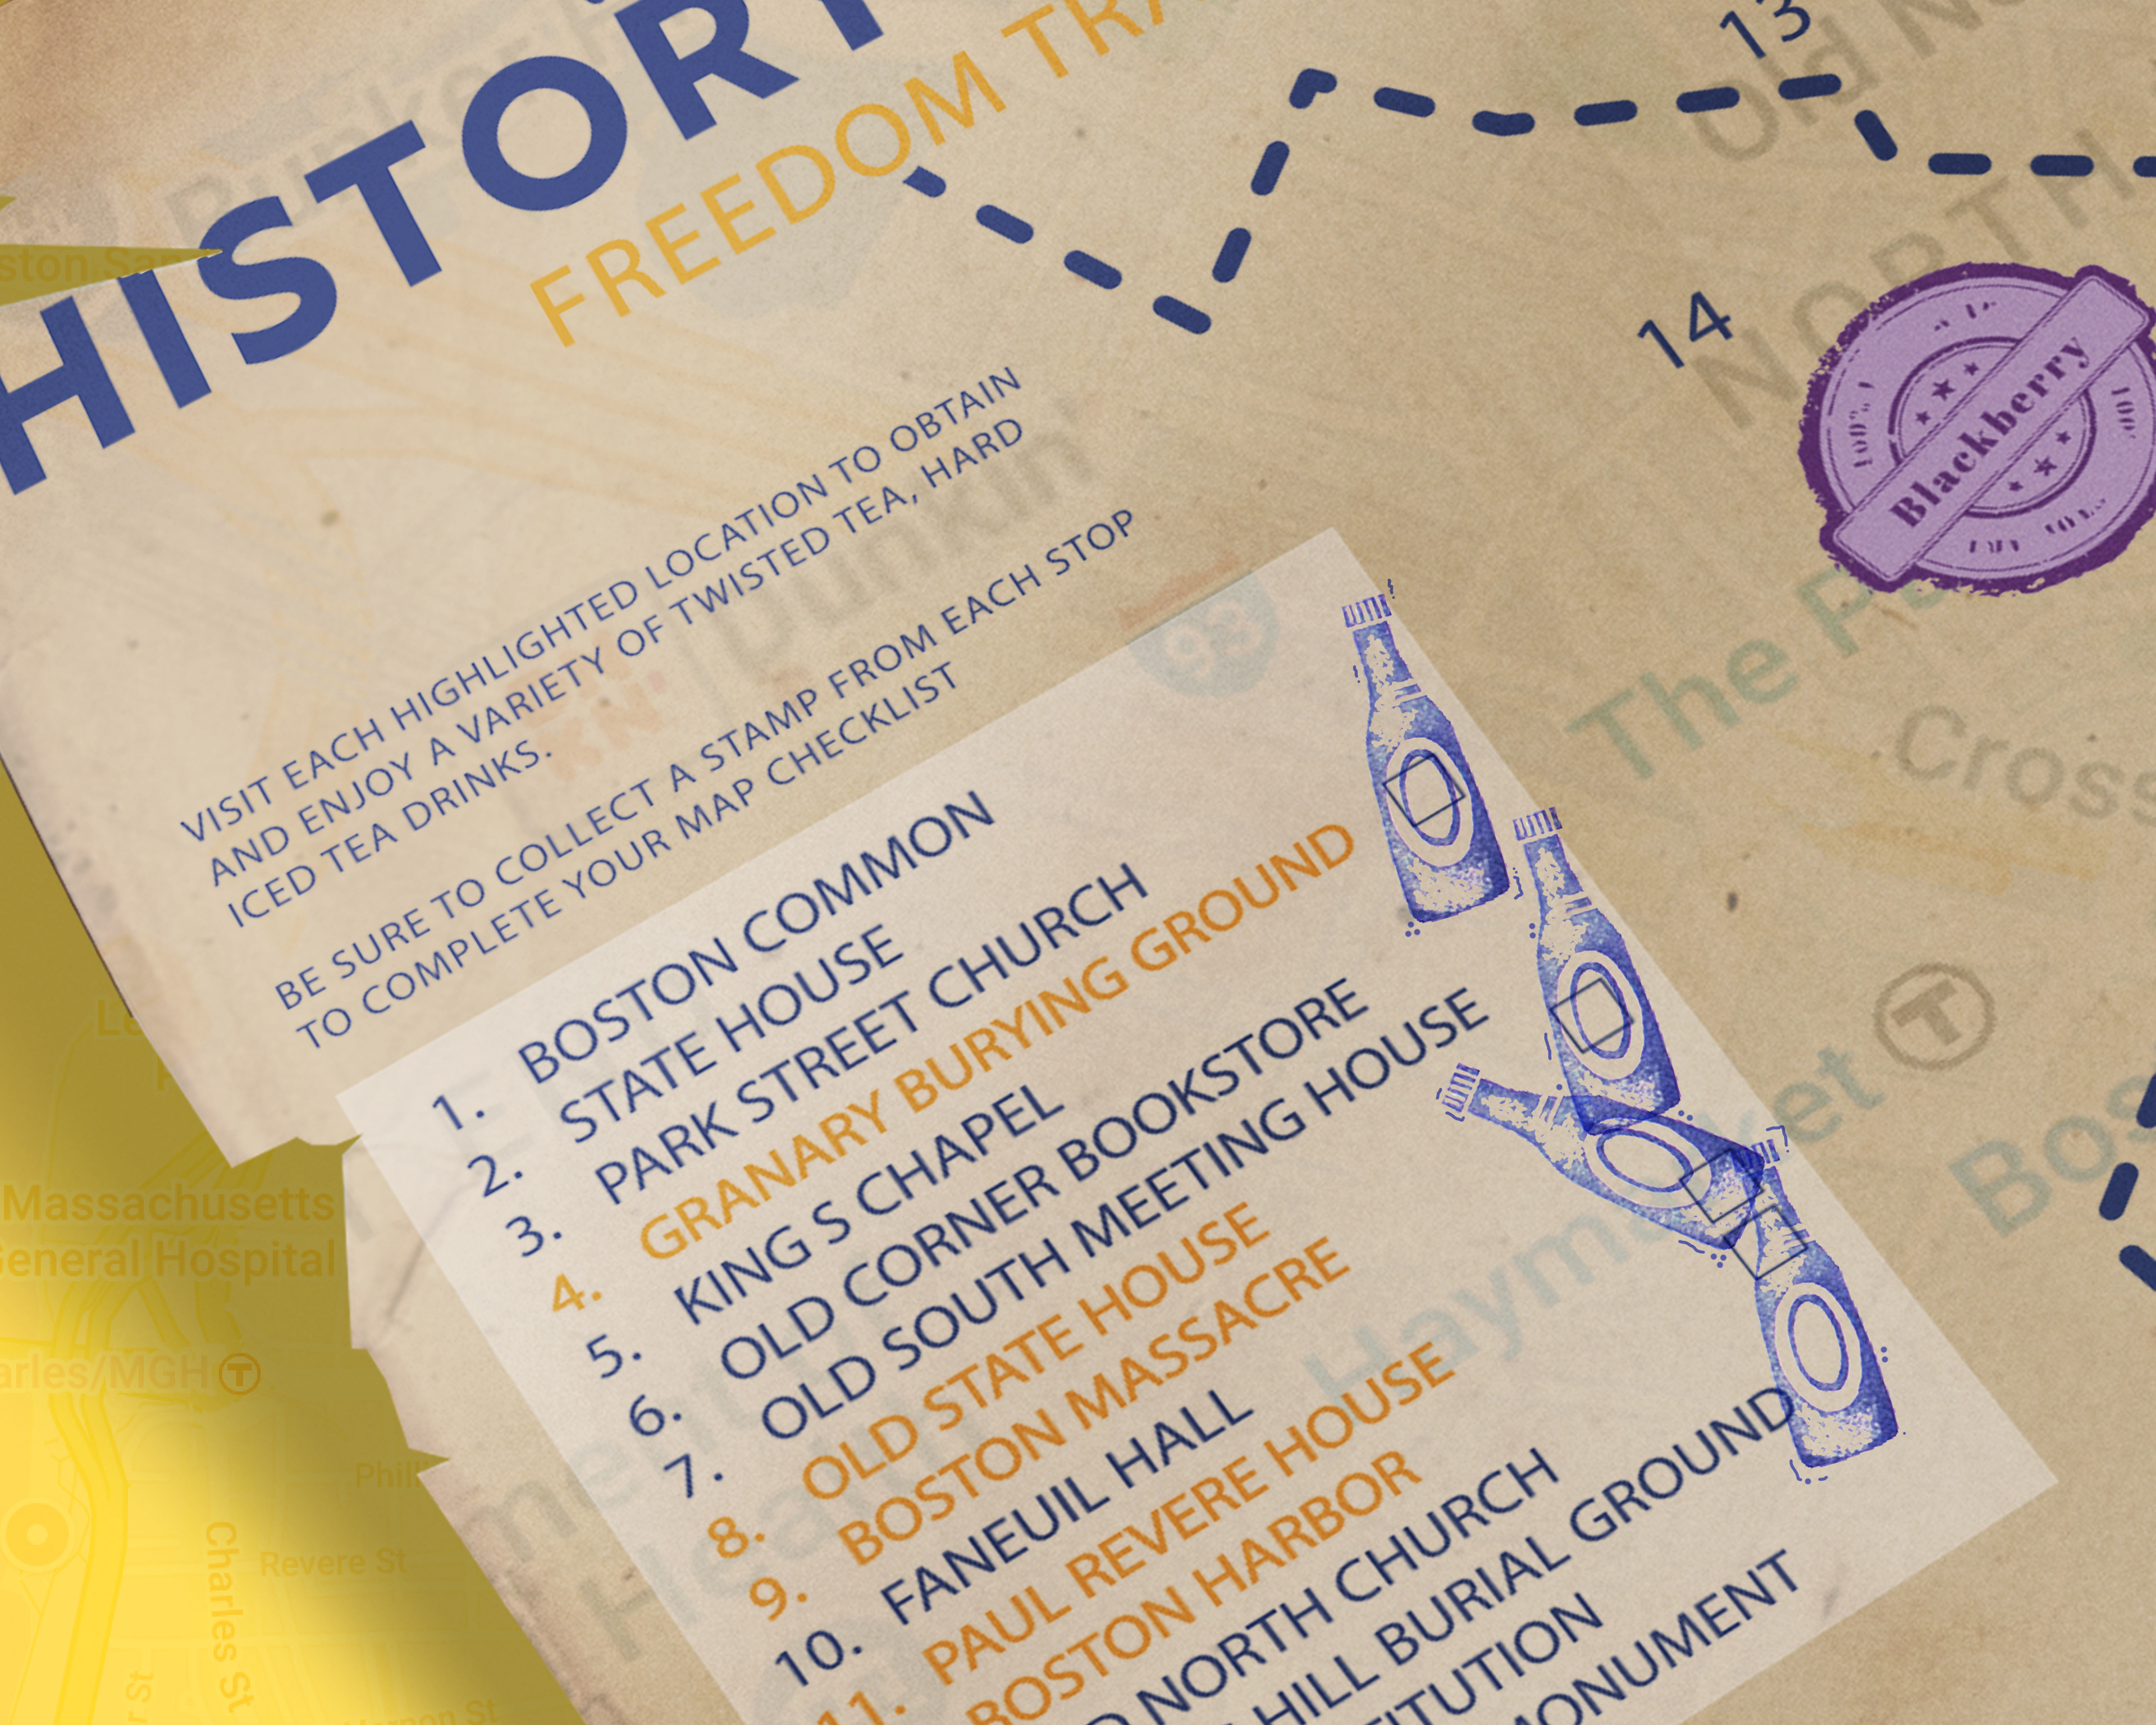 HISTOR
FREEDOM TRA
13
14
Blackberry
VISIT EACH HIGHLIGHTED LOCATION TO OBTAIN
AND ENJOY A VARIETY OF TWISTED TEA, HARD
ICED TEA DRINKS.
BE SURE TO COLLECT A STAMP FROM EACH STOP
TO COMPLETE YOUR MAP CHECKLIST
1. BOSTON COMMON
2. STATE HOUSE
3. PARK STREET CHURCH
4. GRANARY BURYING GROUND
5. KING S CHAPEL
6. OLD CORNER BOOKSTORE
7. OLD SOUTH MEETING HOUSE
8. OLD STATE HOUSE
9. BOSTON MASSACRE
10. FANEUIL HALL
11. PAUL REVERE HOUSE
BOSTON HARBOR
NORTH CHURCH
HILL BURIAL GROUND
TITUTION
MONUMENT
Bunker
Old No
NORTH
punkin'
93
The P
Cross
T
Haymarket
Bos
Massachusetts
General Hospital
arles/MGH T
Revere St
Charles St